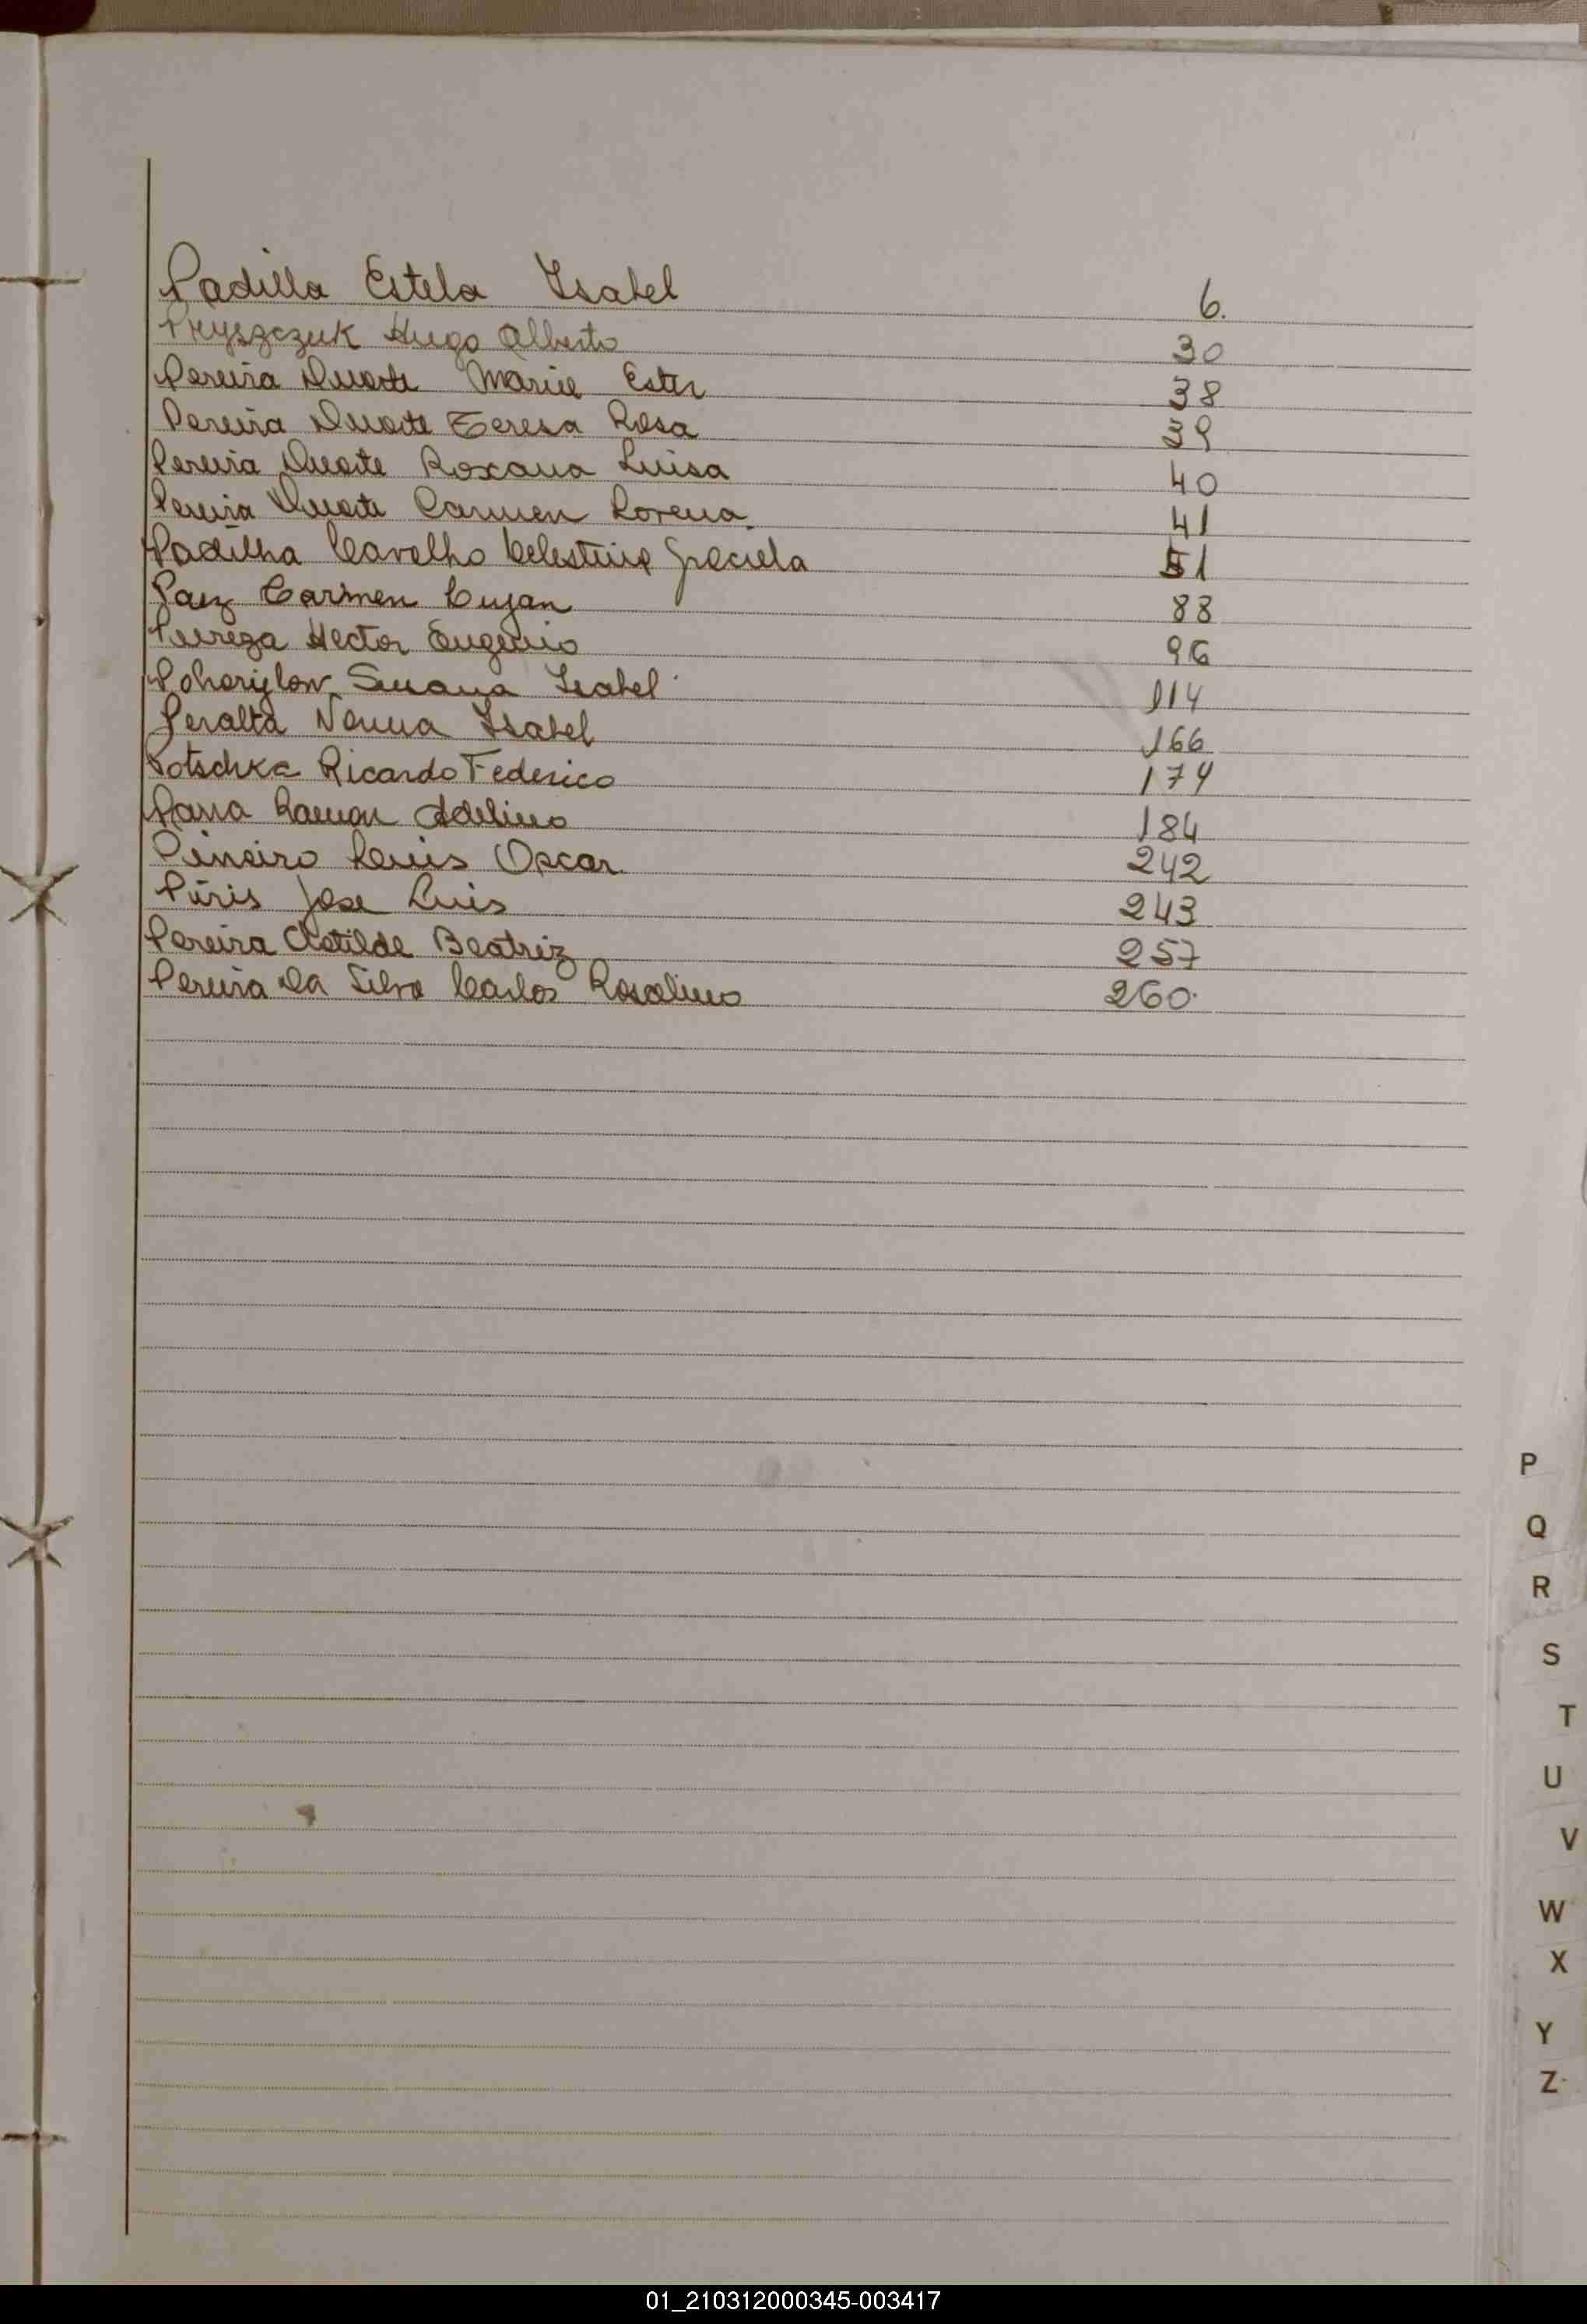 Padilla Estela Isabel 6.
Pryszczuk Hugo Alberto 30
Pereira Duarte Maria Ester 38
Pereira Duarte Teresa Rosa 39
Pereira Duarte Roxana Luisa 40
Pereira Duarte Carmen Lorena 41
Padilha Carvelho Celestina Graciela 51
Paez Carmen Lujan 88
Hector Eugenio 96
Susana Isabel 114
Peralta Norma Isabel 166
Potschka Ricardo Federico 174
Parra Ramon Adelino 184
Pineiro Luis Oscar 242
Píris Jose Luis 243
Pereira Clotilde Beatriz 257
Pereira Da Silva Carlos Rosalino 260.
P
Q
R
S
T
U
V
W
X
Y
Z
01_210312000345-003417